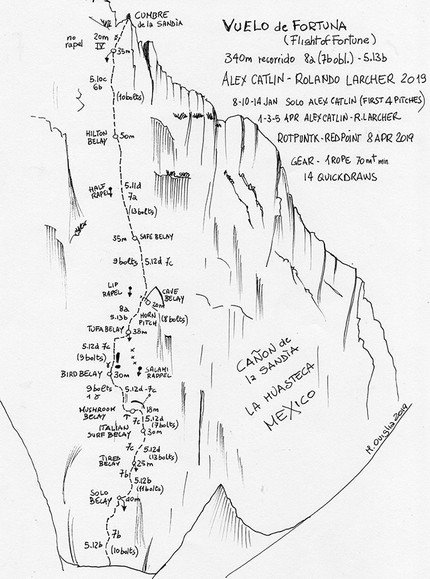 CUMBRE
de la SANDIA
no
rapel
20m
IV
35m
5.10c
6b
(10bolts)
HILTON
BELAY
50m
HALF
RAPEL
5.11d
7a
(13bolts)
35m
SAFE BELAY
9bolts
5.12d 7c
LIP
RAPEL
CAVE
BELAY
20m
8a
5.13b
HORN
PITCH
(8bolts)
TUFA BELAY
35m
5.12d 7c
(9bolts)
SALAMI
RAPPEL
BIRD BELAY
30m
9bolts
5.12d-7c
MUSHROOM
BELAY
18m
7c
5.12d
(7bolts)
ITALIAN
SURF BELAY
30m
7c
5.12d
(13bolts)
TIRED
BELAY
25m
7b
5.12b
(11bolts)
SOLO
BELAY
40m
7b
5.12b
(10bolts)
VUELO de FORTUNA
(Flight of Fortune)
340m recorrido 8a (7b obl.) - 5.13b
ALEX CATLIN - ROLANDO LARCHER 2019
8-10-14 JAN SOLO ALEX CATLIN (FIRST 4 PITCHES)
1-3-5 APR ALEX CATLIN - R.LARCHER
ROTPUNTK-REDPOINT 8 APR 2019
GEAR - 1 ROPE 70 mt min
14 QUICKDRAWS
CAÑON de
la SANDIA
LA HUASTECA
MEXICO